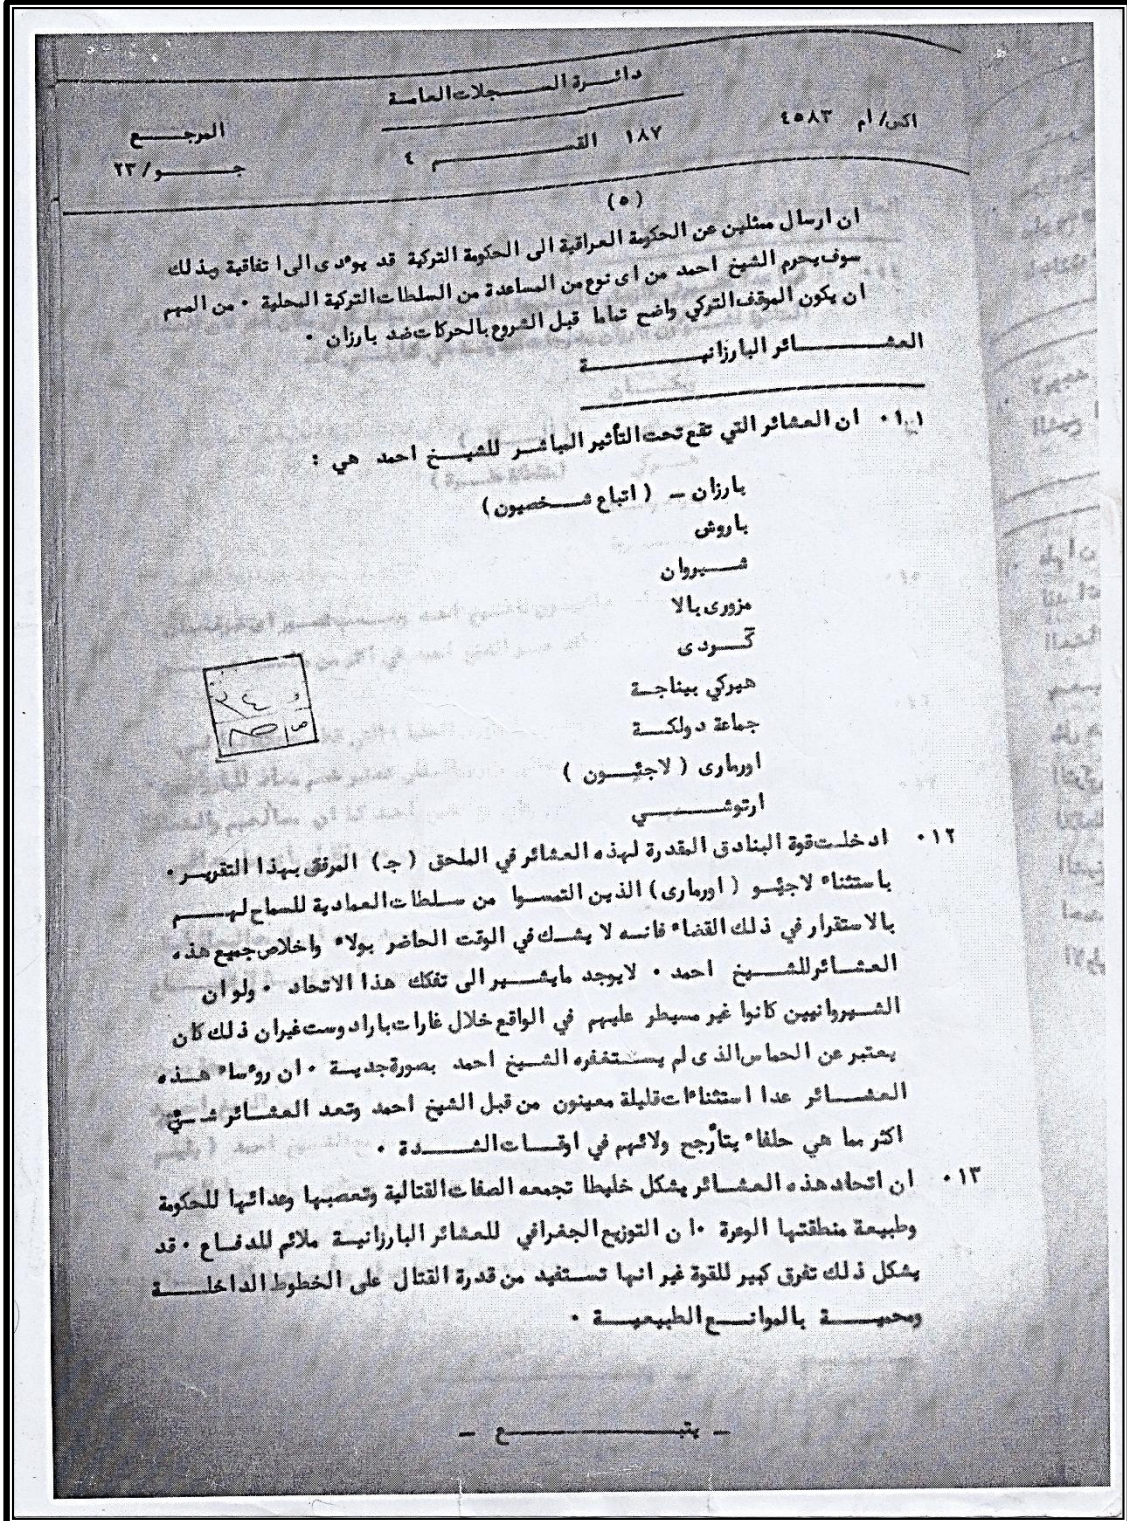 دائرة السجلات العامة
اكس/ ام ٤٥٨٣
١٨٧ القسم ٤
المرجع
جو/ ٢٣
(٥)
ان ارسال ممثلين عن الحكومة العراقية الى الحكومة التركية قد يوءدى الى اتفاقية وبذلك
سوف يحرم الشيخ احمد من اى نوع من المساعدة من السلطات التركية المحلية ٠ من المهم
ان يكون الموقف التركي واضح تماما قبل الشروع بالحركات ضد بارزان ٠
العشائر البارزانية
ان العشائر التي تقع تحت التأثير المباشر للشيخ احمد هي :
بارزان – (اتباع شخصيون)
باروش
شيروان
مزورى بالا
گردى
هيركي بيناجة
جماعة دولكة
اورمارى ( لاجئون )
ارتوشي
١٢٠ ادخلت قوة البنادق المقدرة لهذه العشائر في الملحق (جـ) المرفق بهذا التقرير ٠
باستثناء لاجئو (اورمارى) الذين التمسوا من سلطات العمادية للسماح لهم
بالاستقرار في ذلك القضاء فانه لا يشك في الوقت الحاضر بولاء واخلاص جميع هذه
العشائر للشيخ احمد ٠ لايوجد مايشير الى تفكك هذا الاتحاد ٠ ولو ان
الشيروانيين كانوا غير مسيطر عليهم في الواقع خلال غارات بارادوست غيران ذلك كان
يعتبر عن الحماس الذى لم يستغفره الشيخ احمد بصورة جدية ٠ ان روءساء هذه
العشائر عدا استثناءات قليلة معينون من قبل الشيخ احمد وتعد العشائر شئ
اكثر مما هي حلفاء يتأرجح ولائهم في اوقات الشدة ٠
١٣٠ ان اتحاد هذه العشائر يشكل خليطا تجمعه الصفات القتالية وتعصبها وعدائها للحكومة
وطبيعة منطقتها الوعرة ٠ ان التوزيع الجغرافي للعشائر البارزانية ملائم للدفاع ٠ قد
يشكل ذلك تفرق كبير للقوة غير انها تستفيد من قدرة القتال على الخطوط الداخلة
ومحمية بالموانع الطبيعية ٠
– يتبع –